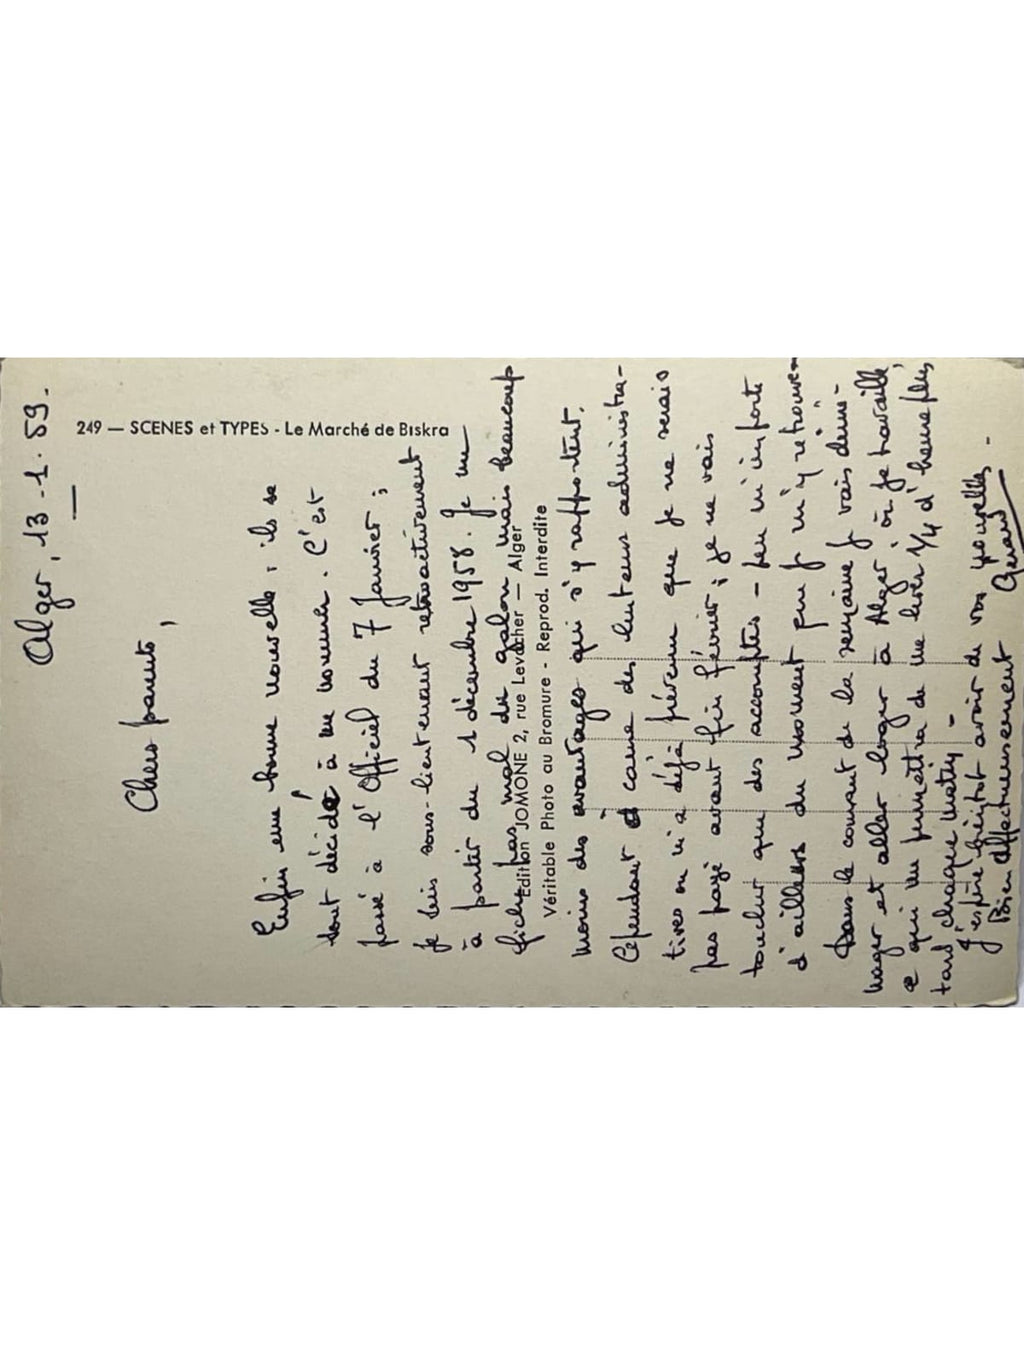 Alger, 13-1.59.
249 — SCENES et TYPES - Le Marché de Biskra
Chers parents,
Enfin une bonne nouvelle : ils se
sont décidé à me nommer. C'est
passé à l'Officiel du 7 Janvier ;
je suis sous-lieutenant retroactivement
à partir du 1 décembre 1958. Je me
fiche pas mal du galon mais beaucoup
Edition JOMONE 2, rue Levacher — Alger
Véritable Photo au Bromure - Reprod. Interdite
moins des avantages qui s'y rapportent.
Cependant à cause des lenteurs administra-
tives on m'a déjà prévenu que je ne serais
pas payé avant fin février ; je ne vais
toucher que des accomptes - peu m'importe
d'ailleurs du moment que je m'y retrouve
Dans le courant de la semaine je vais démé-
nager et aller loger à Alger, où je travaille,
ce qui me permettra de me lever 1/4 d'heure plus
tard chaque matin -
J'espère bientôt avoir de vos nouvelles -
Bien affectueusement
Gérard